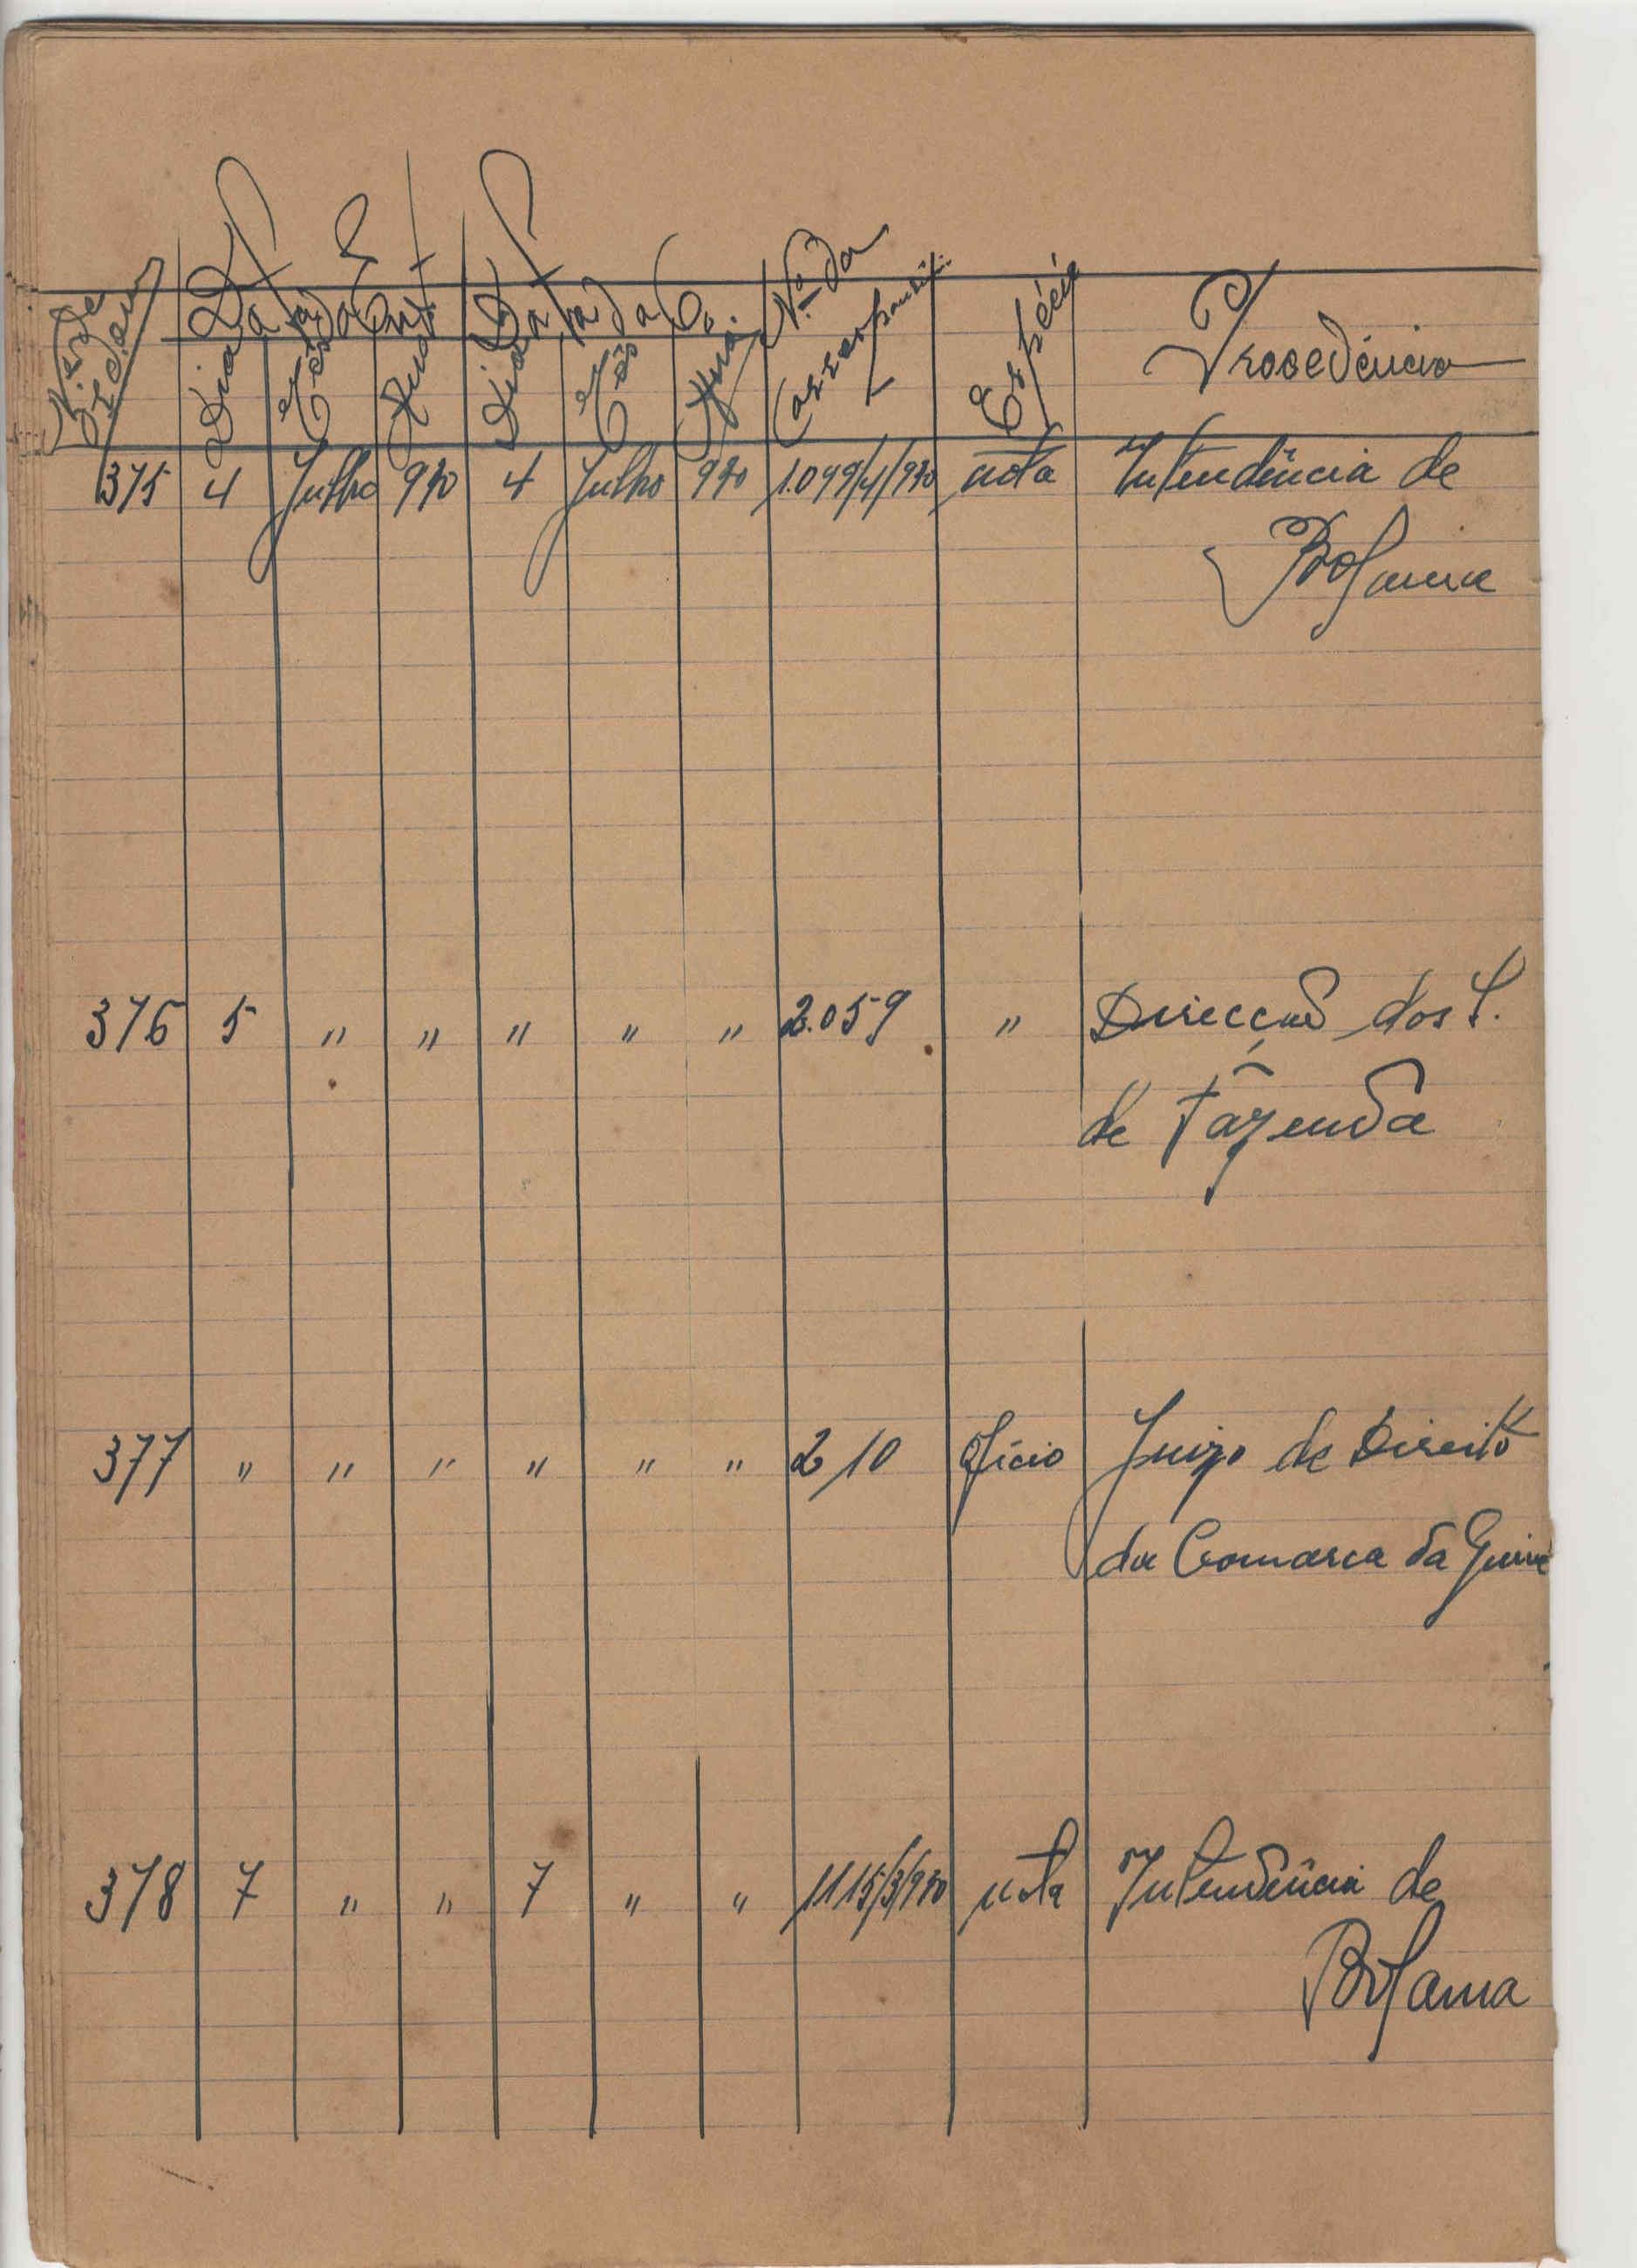 Nº de Ordem Data da Ent. Data da Co. Nº da Correspondi. Espécie Procedência
Dia Mês Ano Dia Mês Ano
375 4 Julho 970 4 Julho 970 1.099/4/970 nota Intendência de
Bolama
376 5 " " " " " 2.059 " Direcção dos S.
de Fazenda
377 " " " " " " 210 Ofício Juizo de Direito
da Comarca da Guiné
378 7 " " 7 " " 1115/3/970 nota Intendência de
Bolama